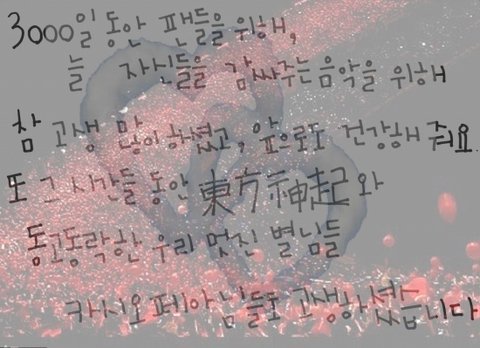 3000일 동안 팬들을 위해,
늘 자신들을 감싸주는 음악을 위해
참 고생 많이 하셨고, 앞으로도 건강해 줘요
또 그 시간들 동안 東方神起와
동고동락한 우리 멋진 별님들
카시오페아님들도 고생하셨습니다